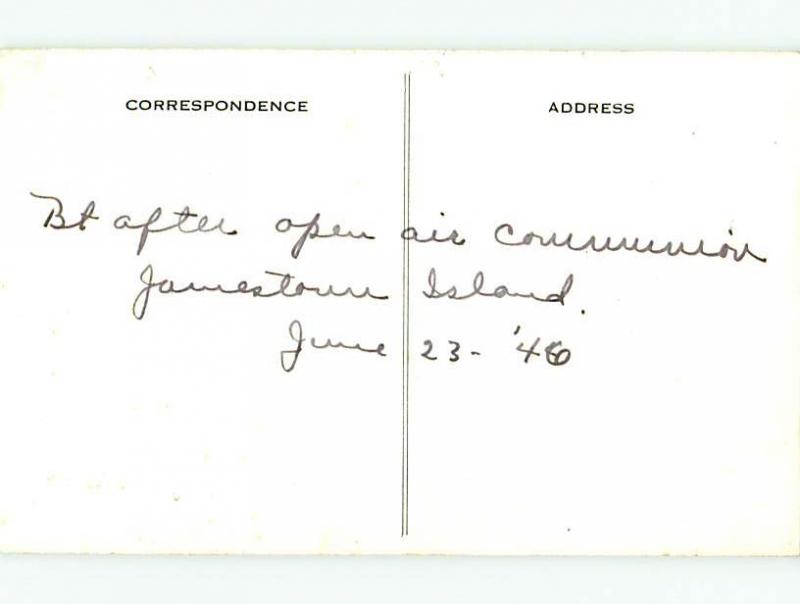 CORRESPONDENCE
ADDRESS
Bt after open air communion
Jamestown Island.
June 23- '46